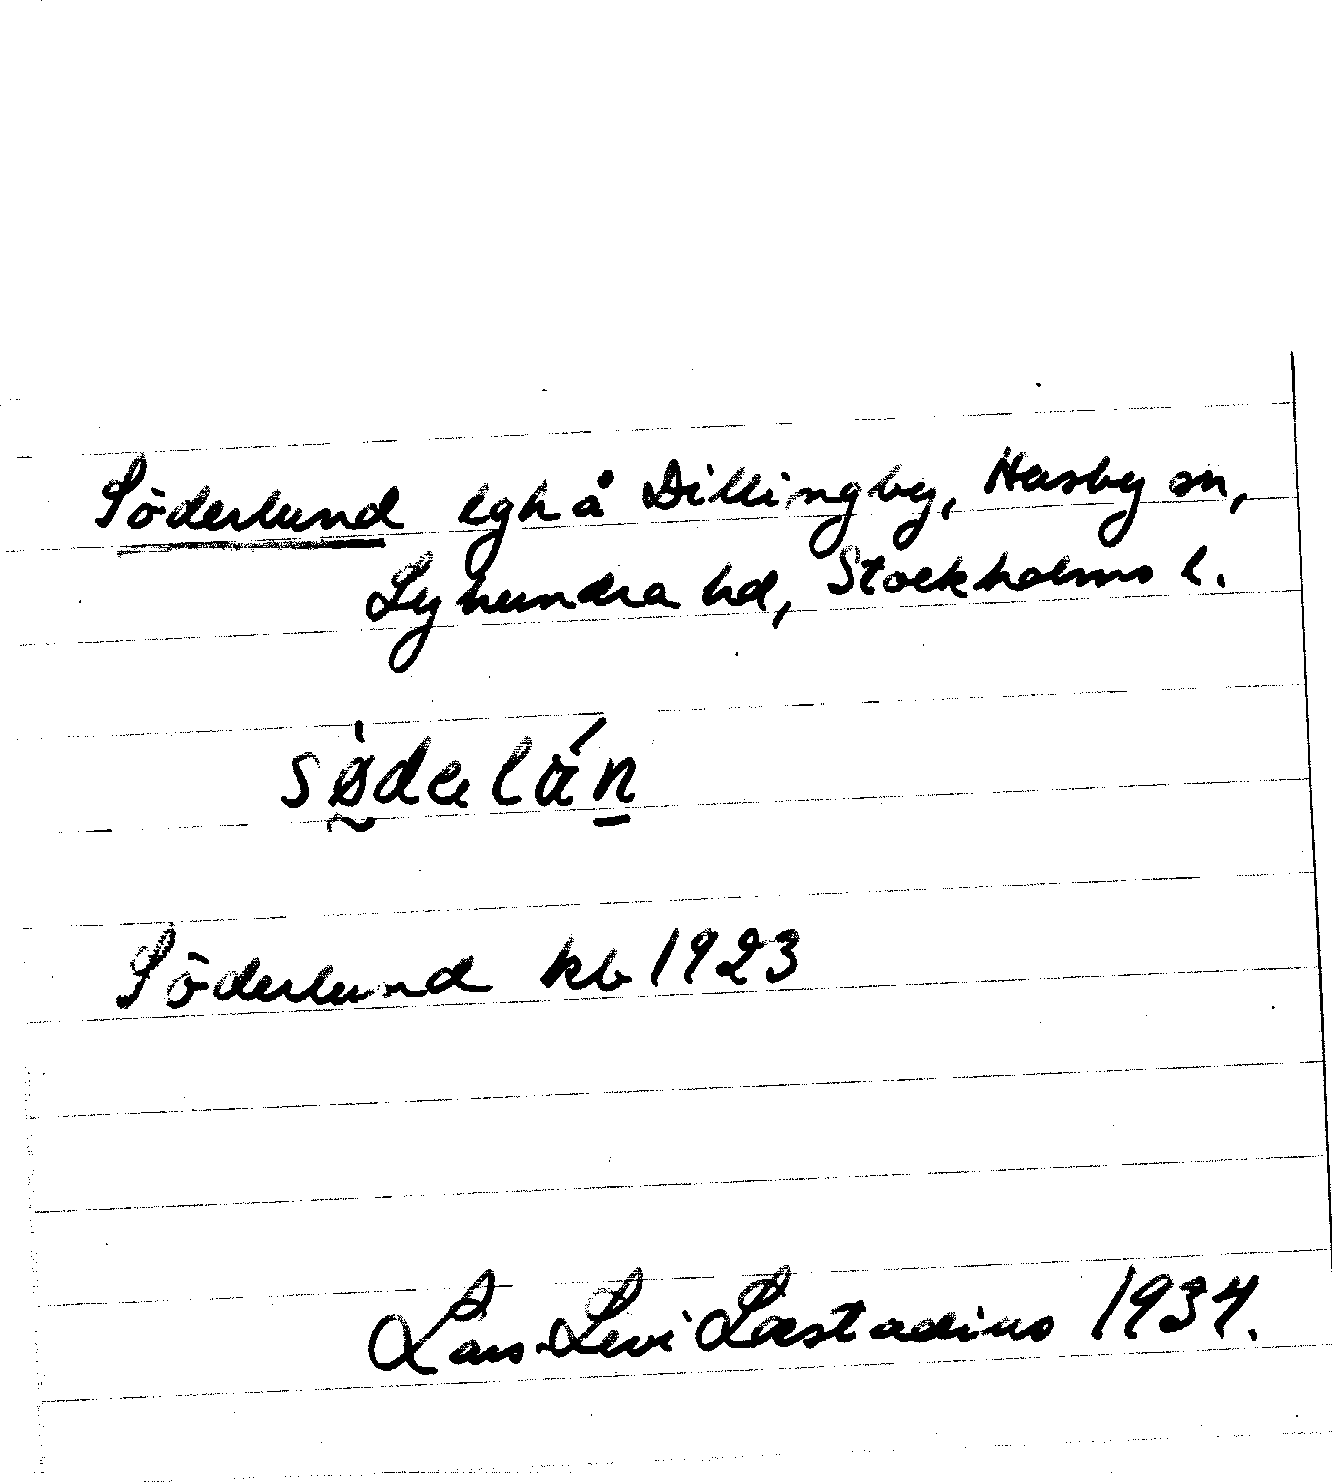 Söderlund lgh å Dillingby, Husby sn,
Lyhundra hd, Stockholms l.
sø̀dəlán
Söderlund kb 1923
Lars-Levi Læstadius 1934.